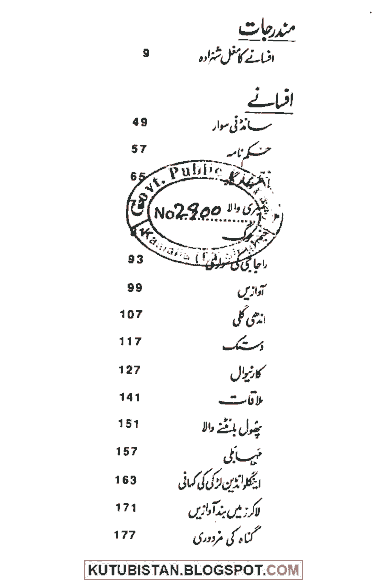 مندرجات
افسانے کا مغل شہزادہ 9
افسانے
سانڈنی سوار 49
حکم نامہ 57
65
Govt. Public
No 2900 والا
93 راجا جی کی سواری
آوازیں 99
اندھی گلی 107
دستک 117
کارنیوال 127
ملاقات 141
پھول بانٹنے والا 151
مہابلی 157
اینگلو انڈین لڑکی کی کہانی 163
لاکرز میں بند آوازیں 171
گناہ کی مزدوری 177
KUTUBISTAN.BLOGSPOT.COM